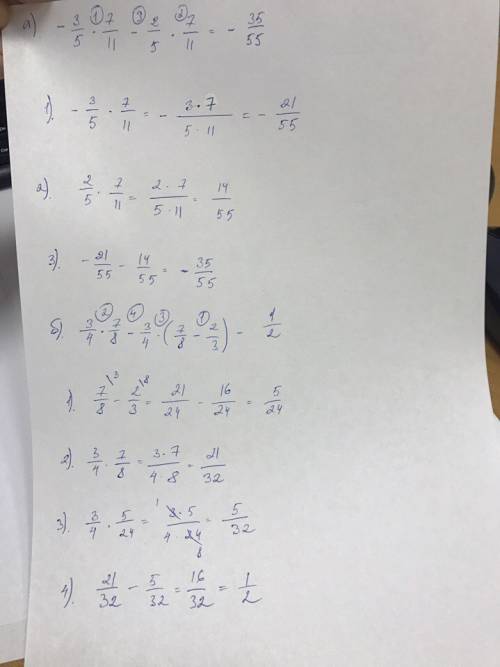 а) - 3/5 ① · 7/11 ③ - 2/5 ② · 7/11 = - 35/55
1). - 3/5 · 7/11 = - 3·7/5·11 = - 21/55
2). 2/5 · 7/11 = 2·7/5·11 = 14/55
3). - 21/55 - 14/55 = - 35/55
б). 3/4 ② · 7/8 ④ - 3/4 ③ · (7/8 ① - 2/3) = 1/2
1). 7/8 \3 - 2/3 \8 = 21/24 - 16/24 = 5/24
2). 3/4 · 7/8 = 3·7/4·8 = 21/32
3). 3/4 · 5/24 = 1 3·5/4·24 8 = 5/32
4). 21/32 - 5/32 = 16/32 = 1/2